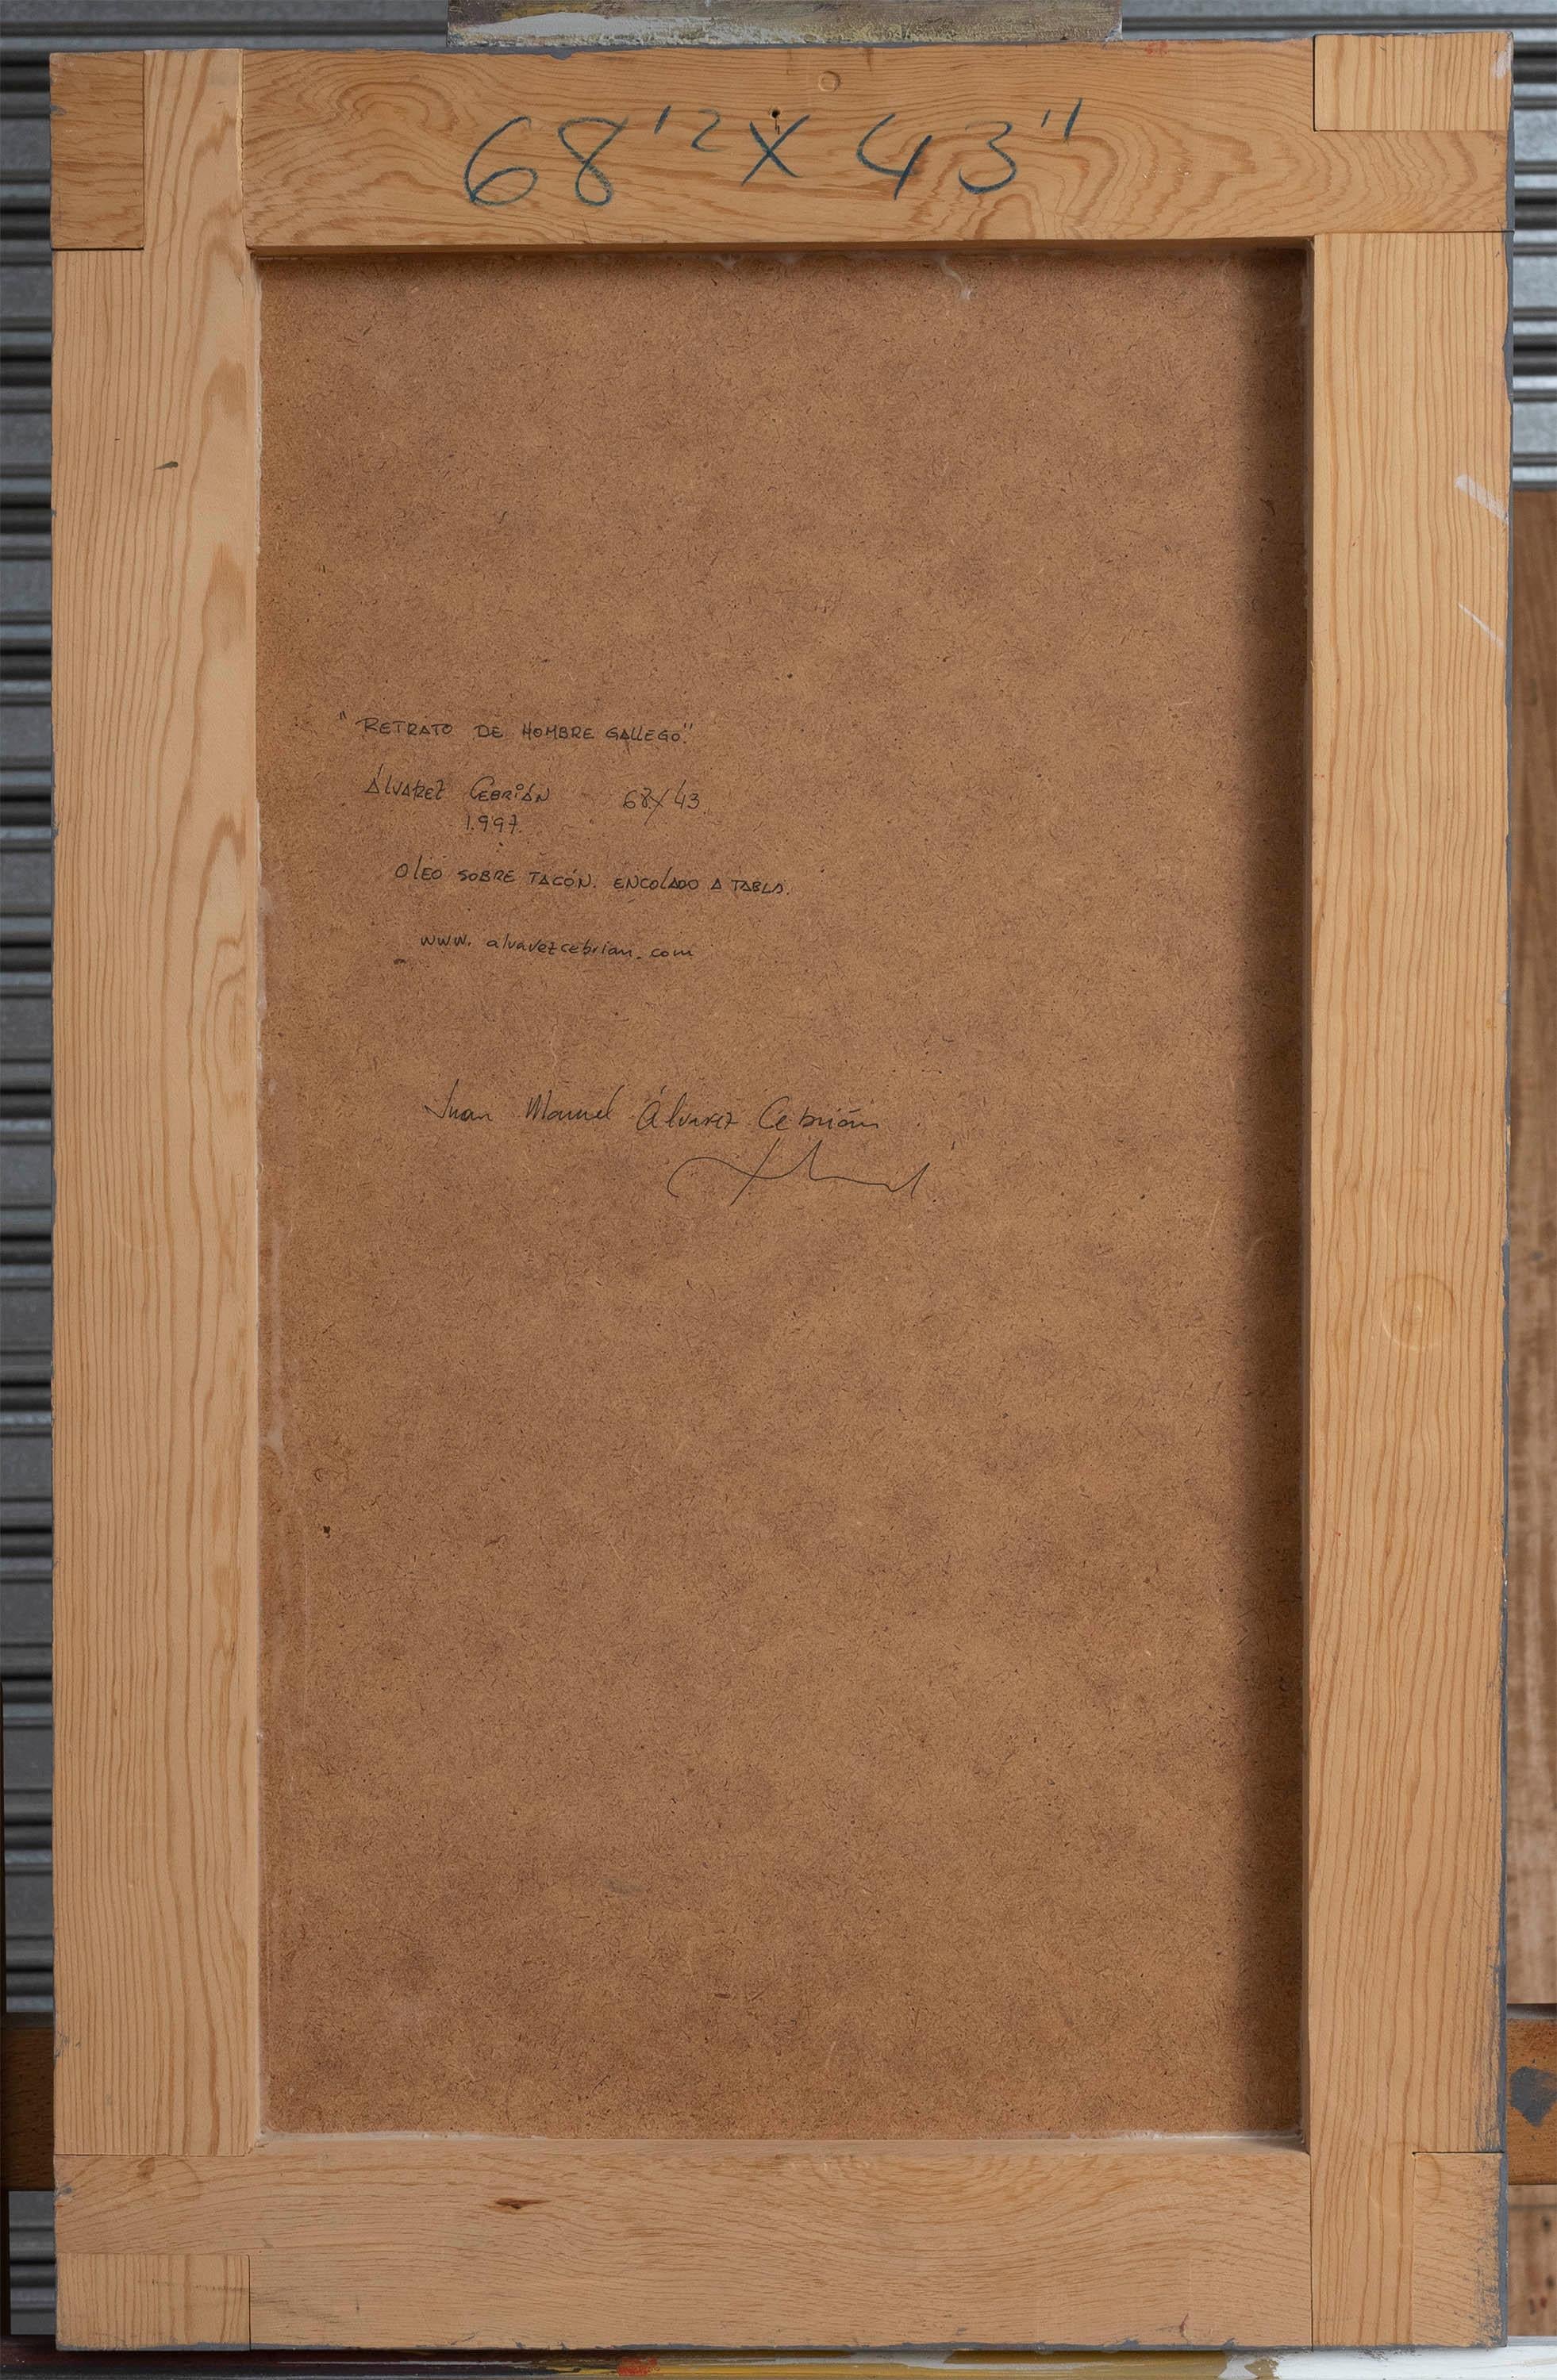 68'2 X 43"
"RETRATO DE HOMBRE GALLEGO."
ÁLVAREZ CEBRIÁN 68X43
1.997.
OLEO SOBRE TACÓN. ENCOLADO A TABLA.
www.alvarezcebrian.com
Juan Manuel Álvarez Cebrián